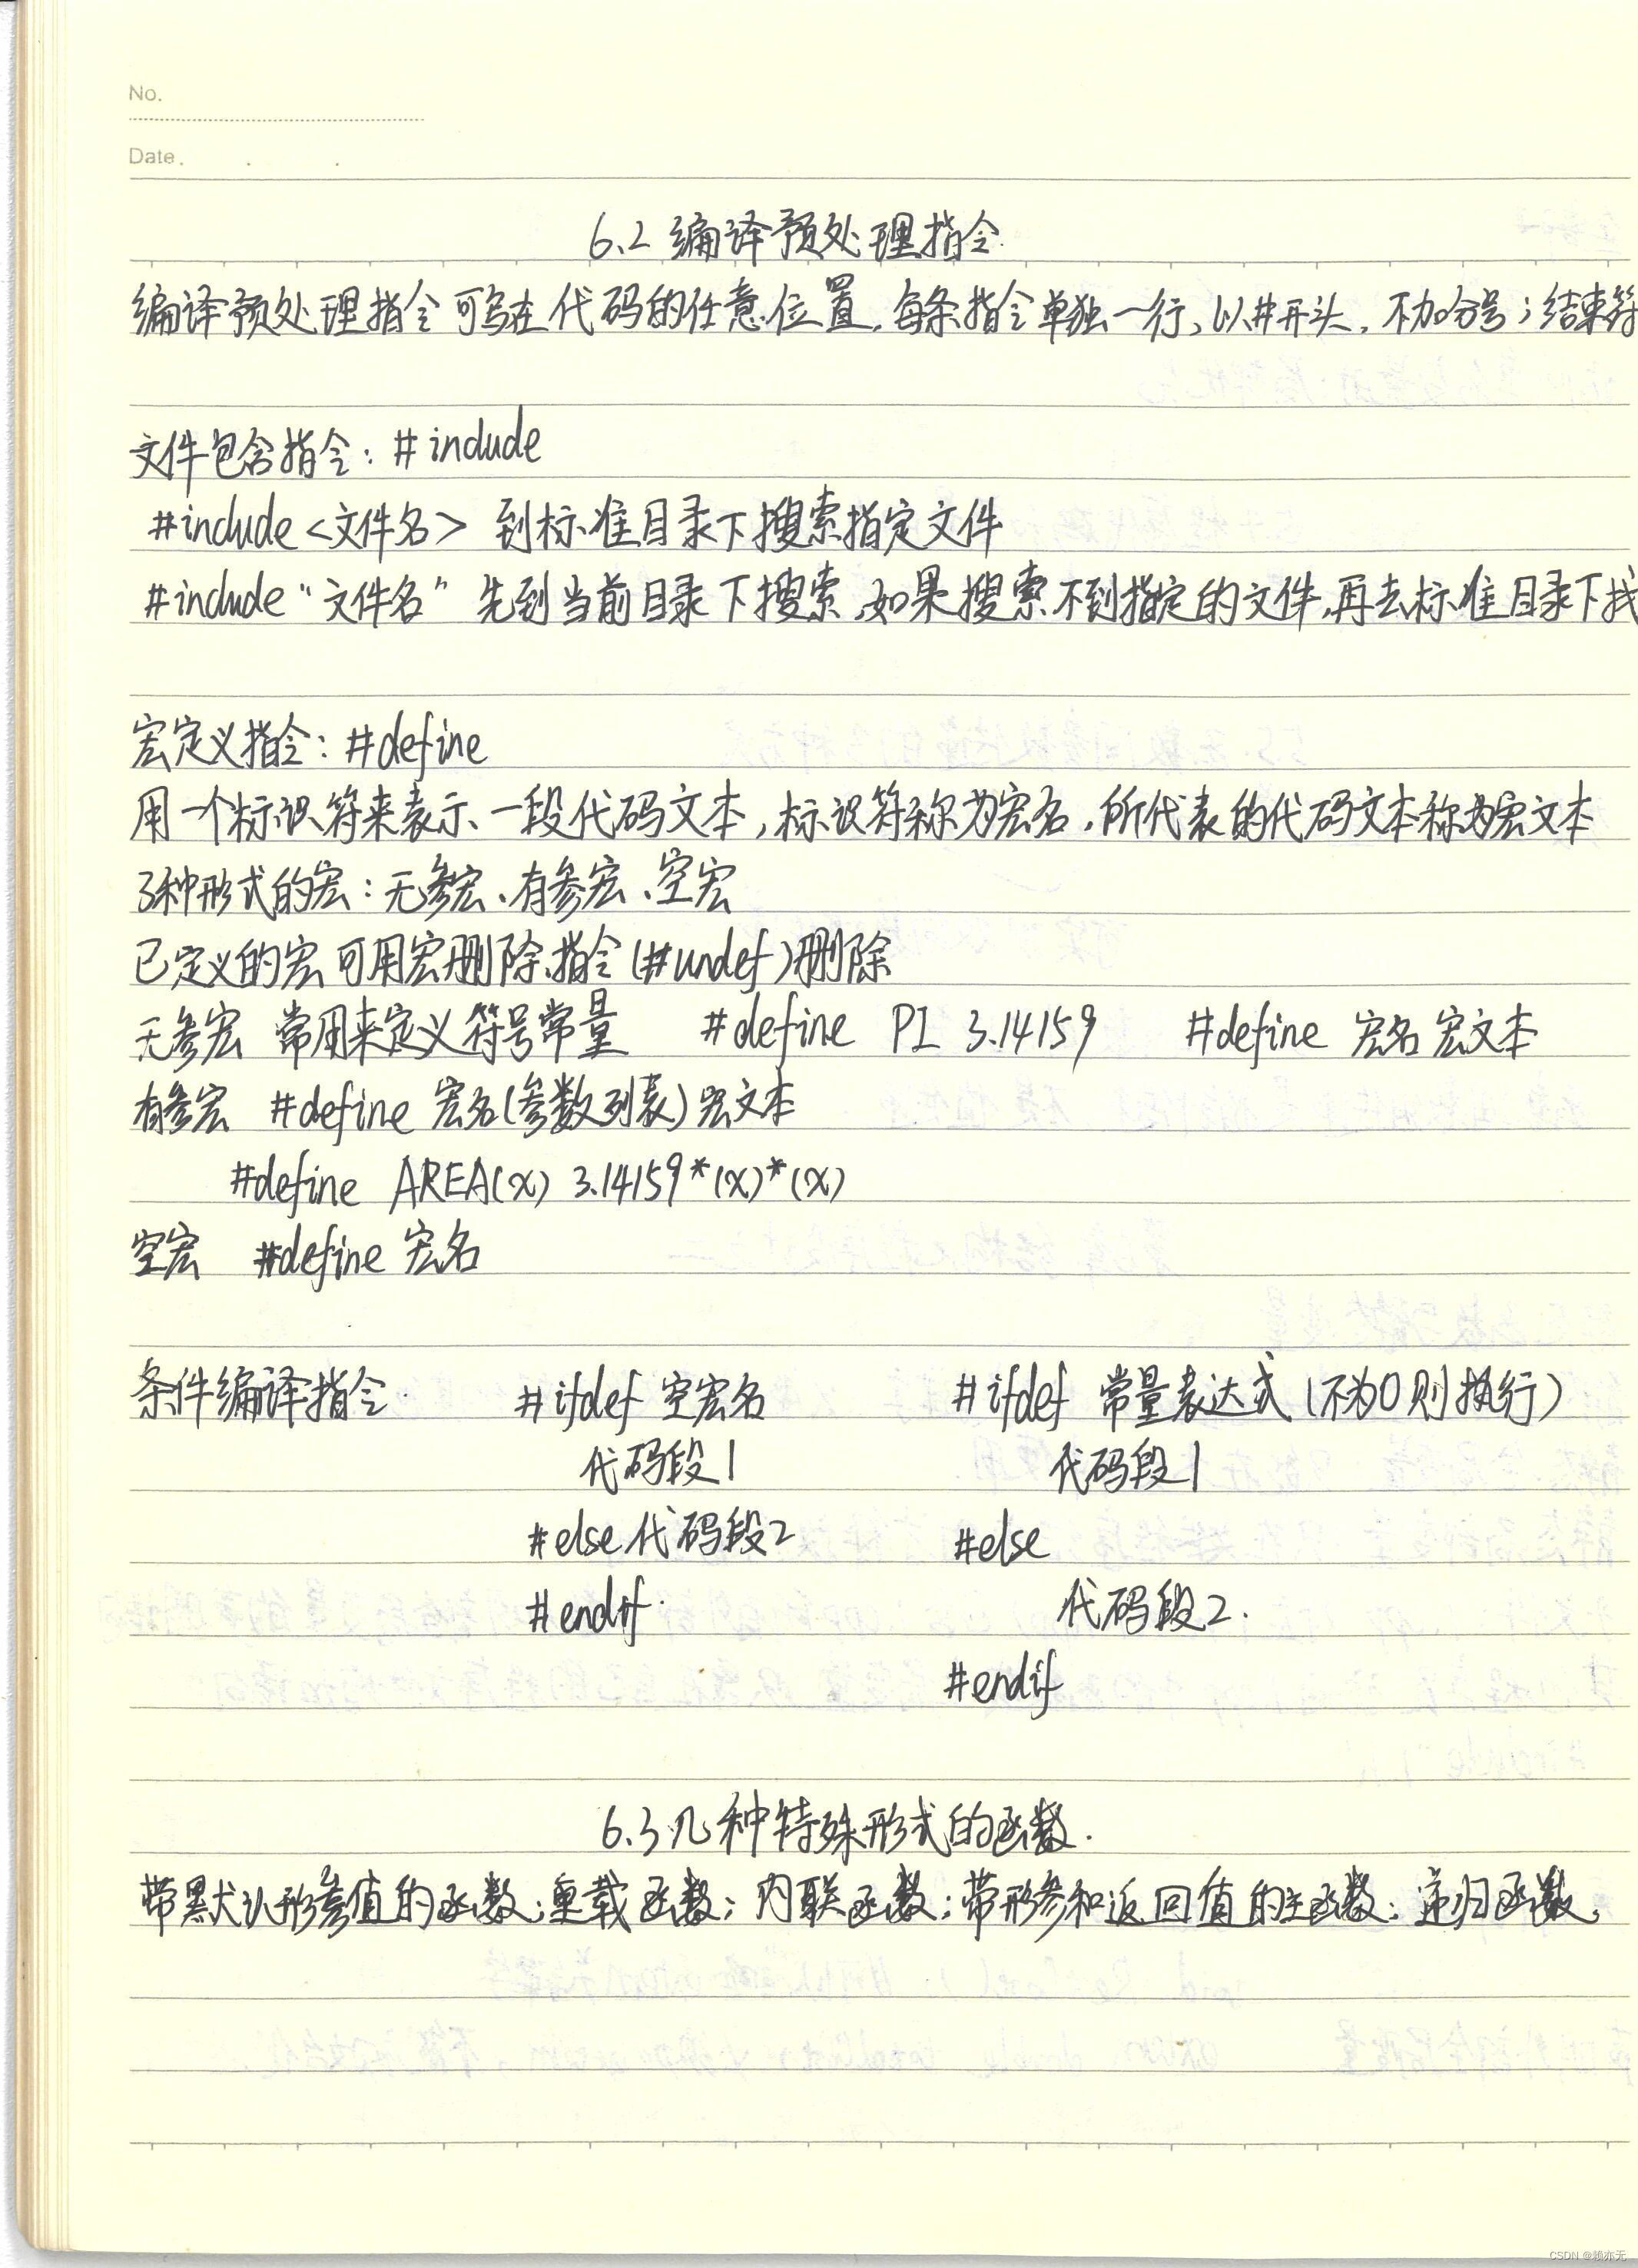 No.
Date.
6.2 编译预处理指令
编译预处理指令可写在代码的任意位置,每条指令单独一行,以#开头,不加分号;结束符
文件包含指令:#include
#include<文件名> 到标准目录下搜索指定文件
#include“文件名” 先到当前目录下搜索,如果搜索不到指定的文件,再去标准目录下找
宏定义指令:#define
用一个标识符来表示一段代码文本,标识符称为宏名,所代表的代码文本称为宏文本
3种形式的宏:无参宏、有参宏、空宏
已定义的宏可用宏删除指令(#undef)删除
无参宏 常用来定义符号常量 #define PI 3.14159 #define 宏名 宏文本
有参宏 #define 宏名(参数列表)宏文本
#define AREA(x) 3.14159*(x)*(x)
空宏 #define 宏名
条件编译指令. #ifdef 空宏名 #ifdef 常量表达式(不为0则执行)
代码段1 代码段1
#else 代码段2 #else
#endif. 代码段2.
#endif
6.3 几种特殊形式的函数.
带默认形参值的函数;重载函数;内联函数;带形参和返回值的主函数;递归函数。
CSDN @赖亦无